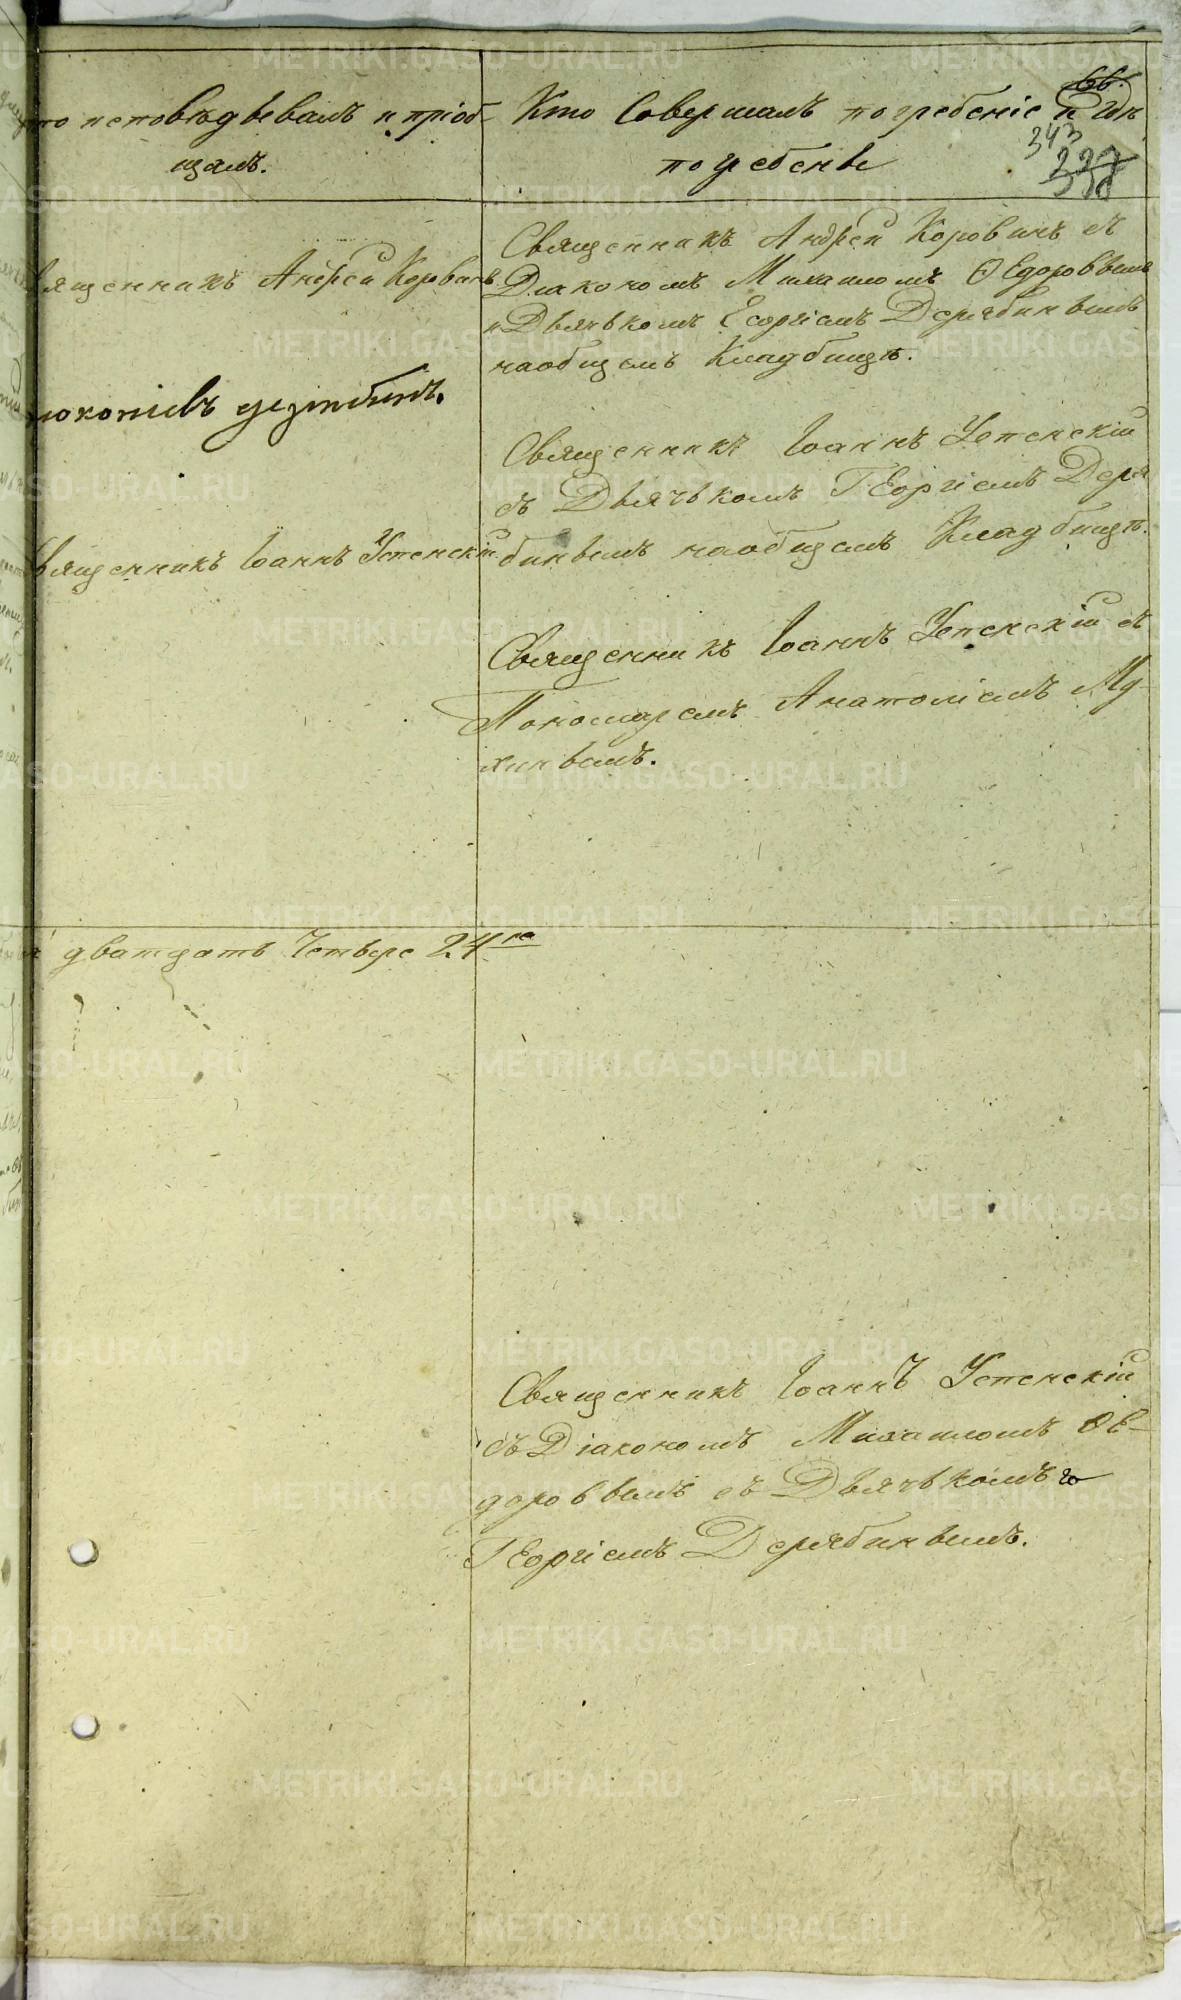 исповѣдывалъ и пріоб-
щалъ.
Кто совершалъ погребеніе и гдѣ
погребены
66.
343
338
Священникъ Андрей Коровинъ
Священникъ Андрей Коровинъ съ
Діакономъ Михаиломъ Ѳедоровымъ
и Дьячькомъ Георгіемъ Дерябинымъ
наобщемъ Кладбищѣ.
Священникъ Іоаннъ Успенскій
съ Дьячькомъ Георгіемъ Деря
бинымъ наобщемъ Кладбищѣ.
Священникъ Іоаннъ Успенскій
Священникъ Іоаннъ Успенскій съ
Пономаремъ Анатоліемъ Му-
хинымъ.
дватцать Четыре 24
Священникъ Іоаннъ Успенскій
съ Діакономъ Михаиломъ Ѳе-
доровымъ съ Дьячькомъ
Георгіемъ Дерябинымъ.
METRIKI.GASO-URAL.RU